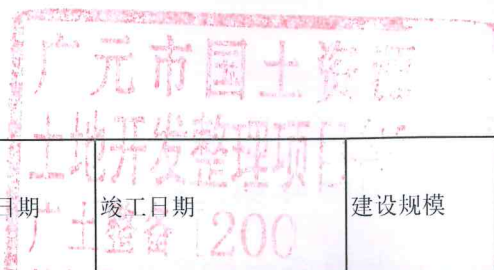 广元市国土资源
土地开发整理项目
日期 竣工日期 建设规模
广土整备[200